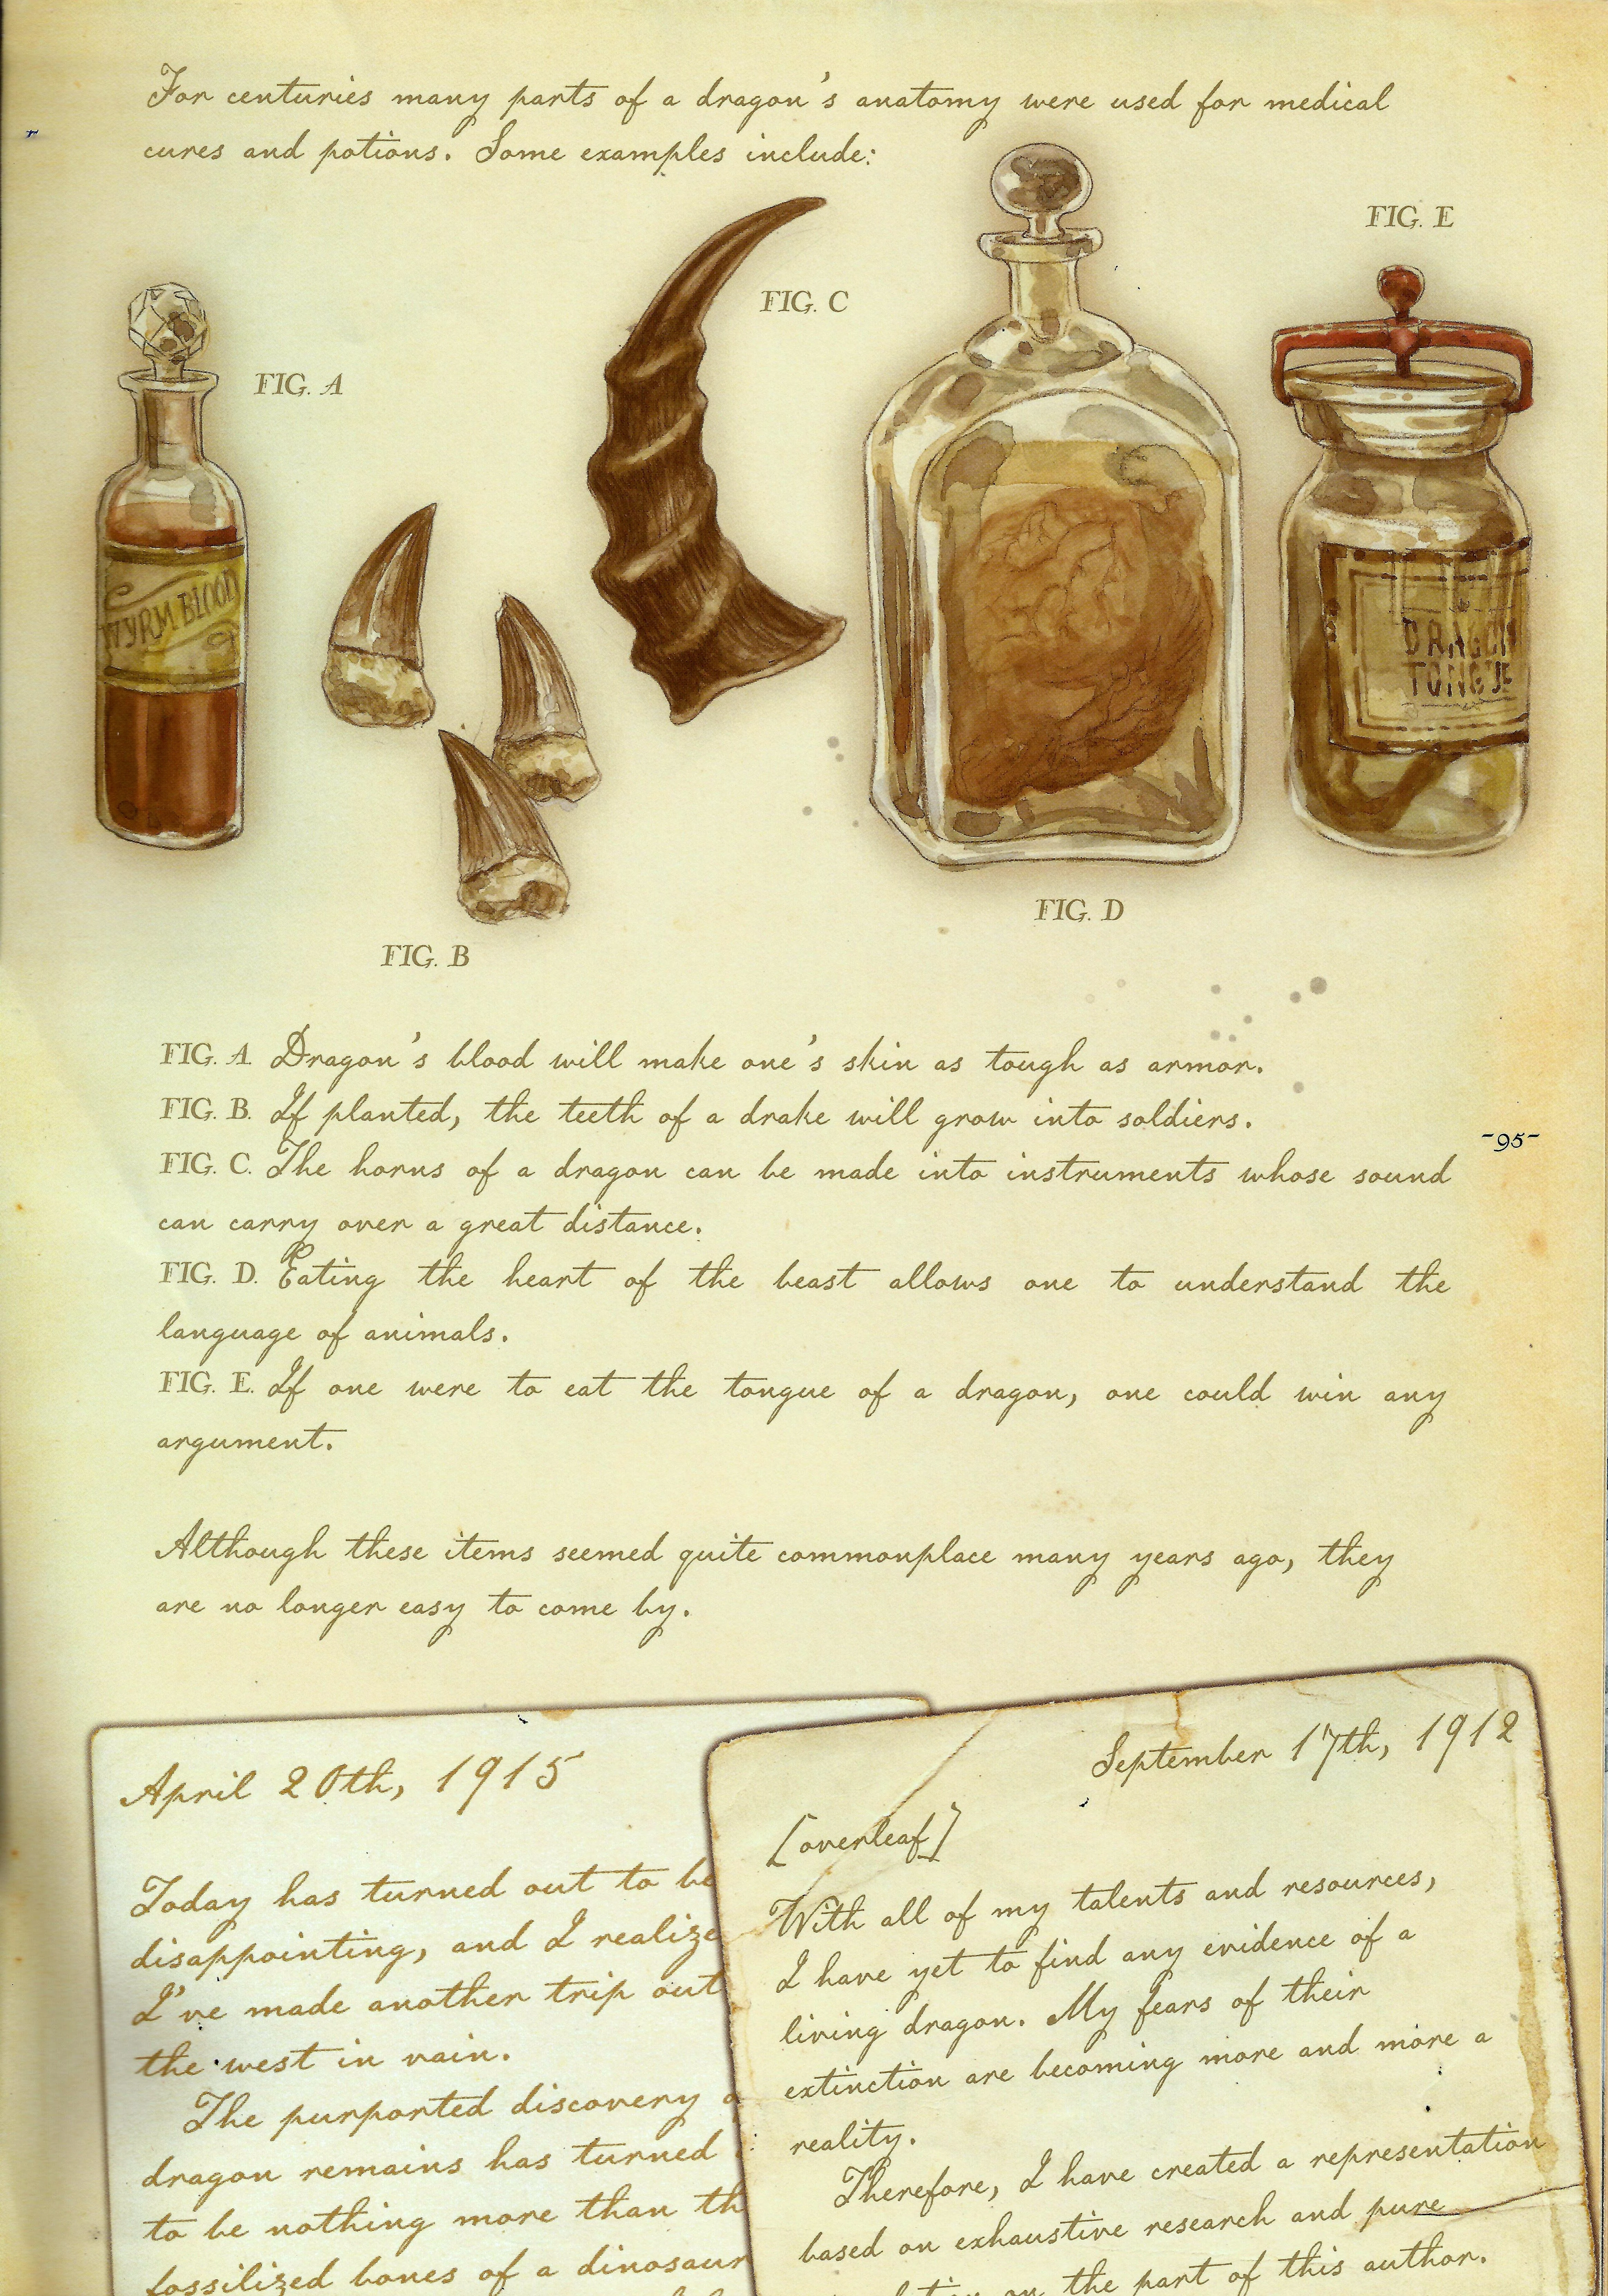 For centuries many parts of a dragon's anatomy were used for medical
cures and potions. Some examples include:
FIG. A
WYRM BLOOD
FIG. B
FIG. C
FIG. D
FIG. E
DRAGON
TONGUE
FIG. A. Dragon's blood will make one's skin as tough as armor.
FIG. B. If planted, the teeth of a drake will grow into soldiers.
FIG. C. The horns of a dragon can be made into instruments whose sound
can carry over a great distance.
FIG. D. Eating the heart of the beast allows one to understand the
language of animals.
FIG. E. If one were to eat the tongue of a dragon, one could win any
argument.
-95-
Although these items seemed quite commonplace many years ago, they
are no longer easy to come by.
April 20th, 1915
Today has turned out to be
disappointing, and I realize
I've made another trip out
the west in vain.
The purported discovery
dragon remains has turned
to be nothing more than
fossilized bones of a dinosaur
September 17th, 1912
[overleaf]
With all of my talents and resources,
I have yet to find any evidence of a
living dragon. My fears of their
extinction are becoming more and more a
reality.
Therefore, I have created a representation
based on exhaustive research and pure
on the part of this author.